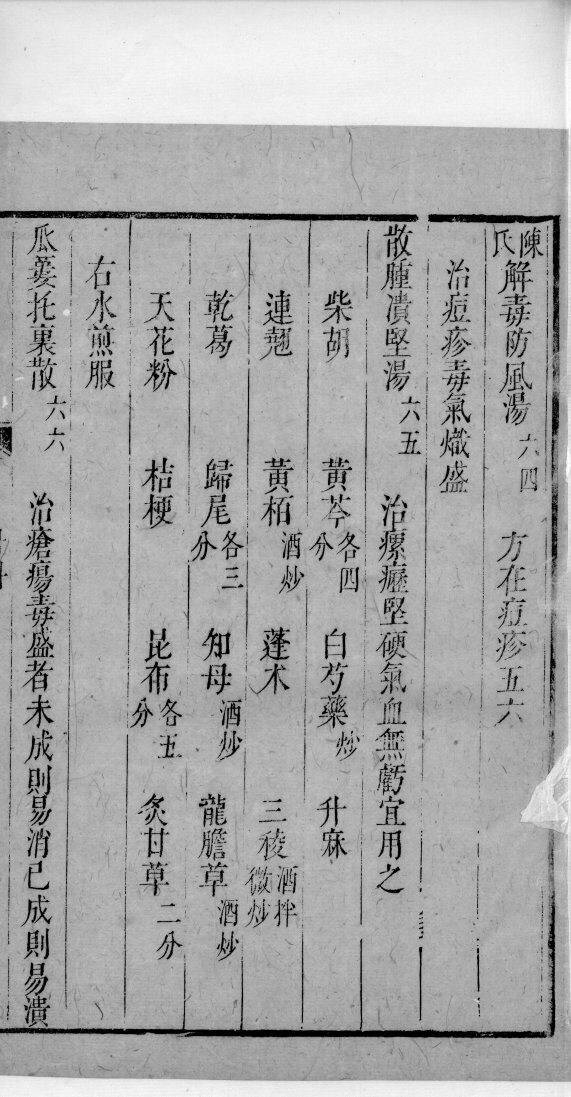 陳氏解毒防風湯六四　方在痘疹五六
治痘疹毒氣熾盛
散腫潰堅湯六五　治瘰癧堅硬氣血無虧宜用之
柴胡　黃芩各四分　白芍藥炒　升麻
連翹　黃栢酒炒　蓬朮　三稜酒拌微炒
乾葛　歸尾各三分　知母酒炒　龍膽草酒炒
天花粉　桔梗　昆布各五分　炙甘草二分
右水煎服
瓜蔞托裏散六六　治瘡瘍毒盛者未成則易消已成則易潰